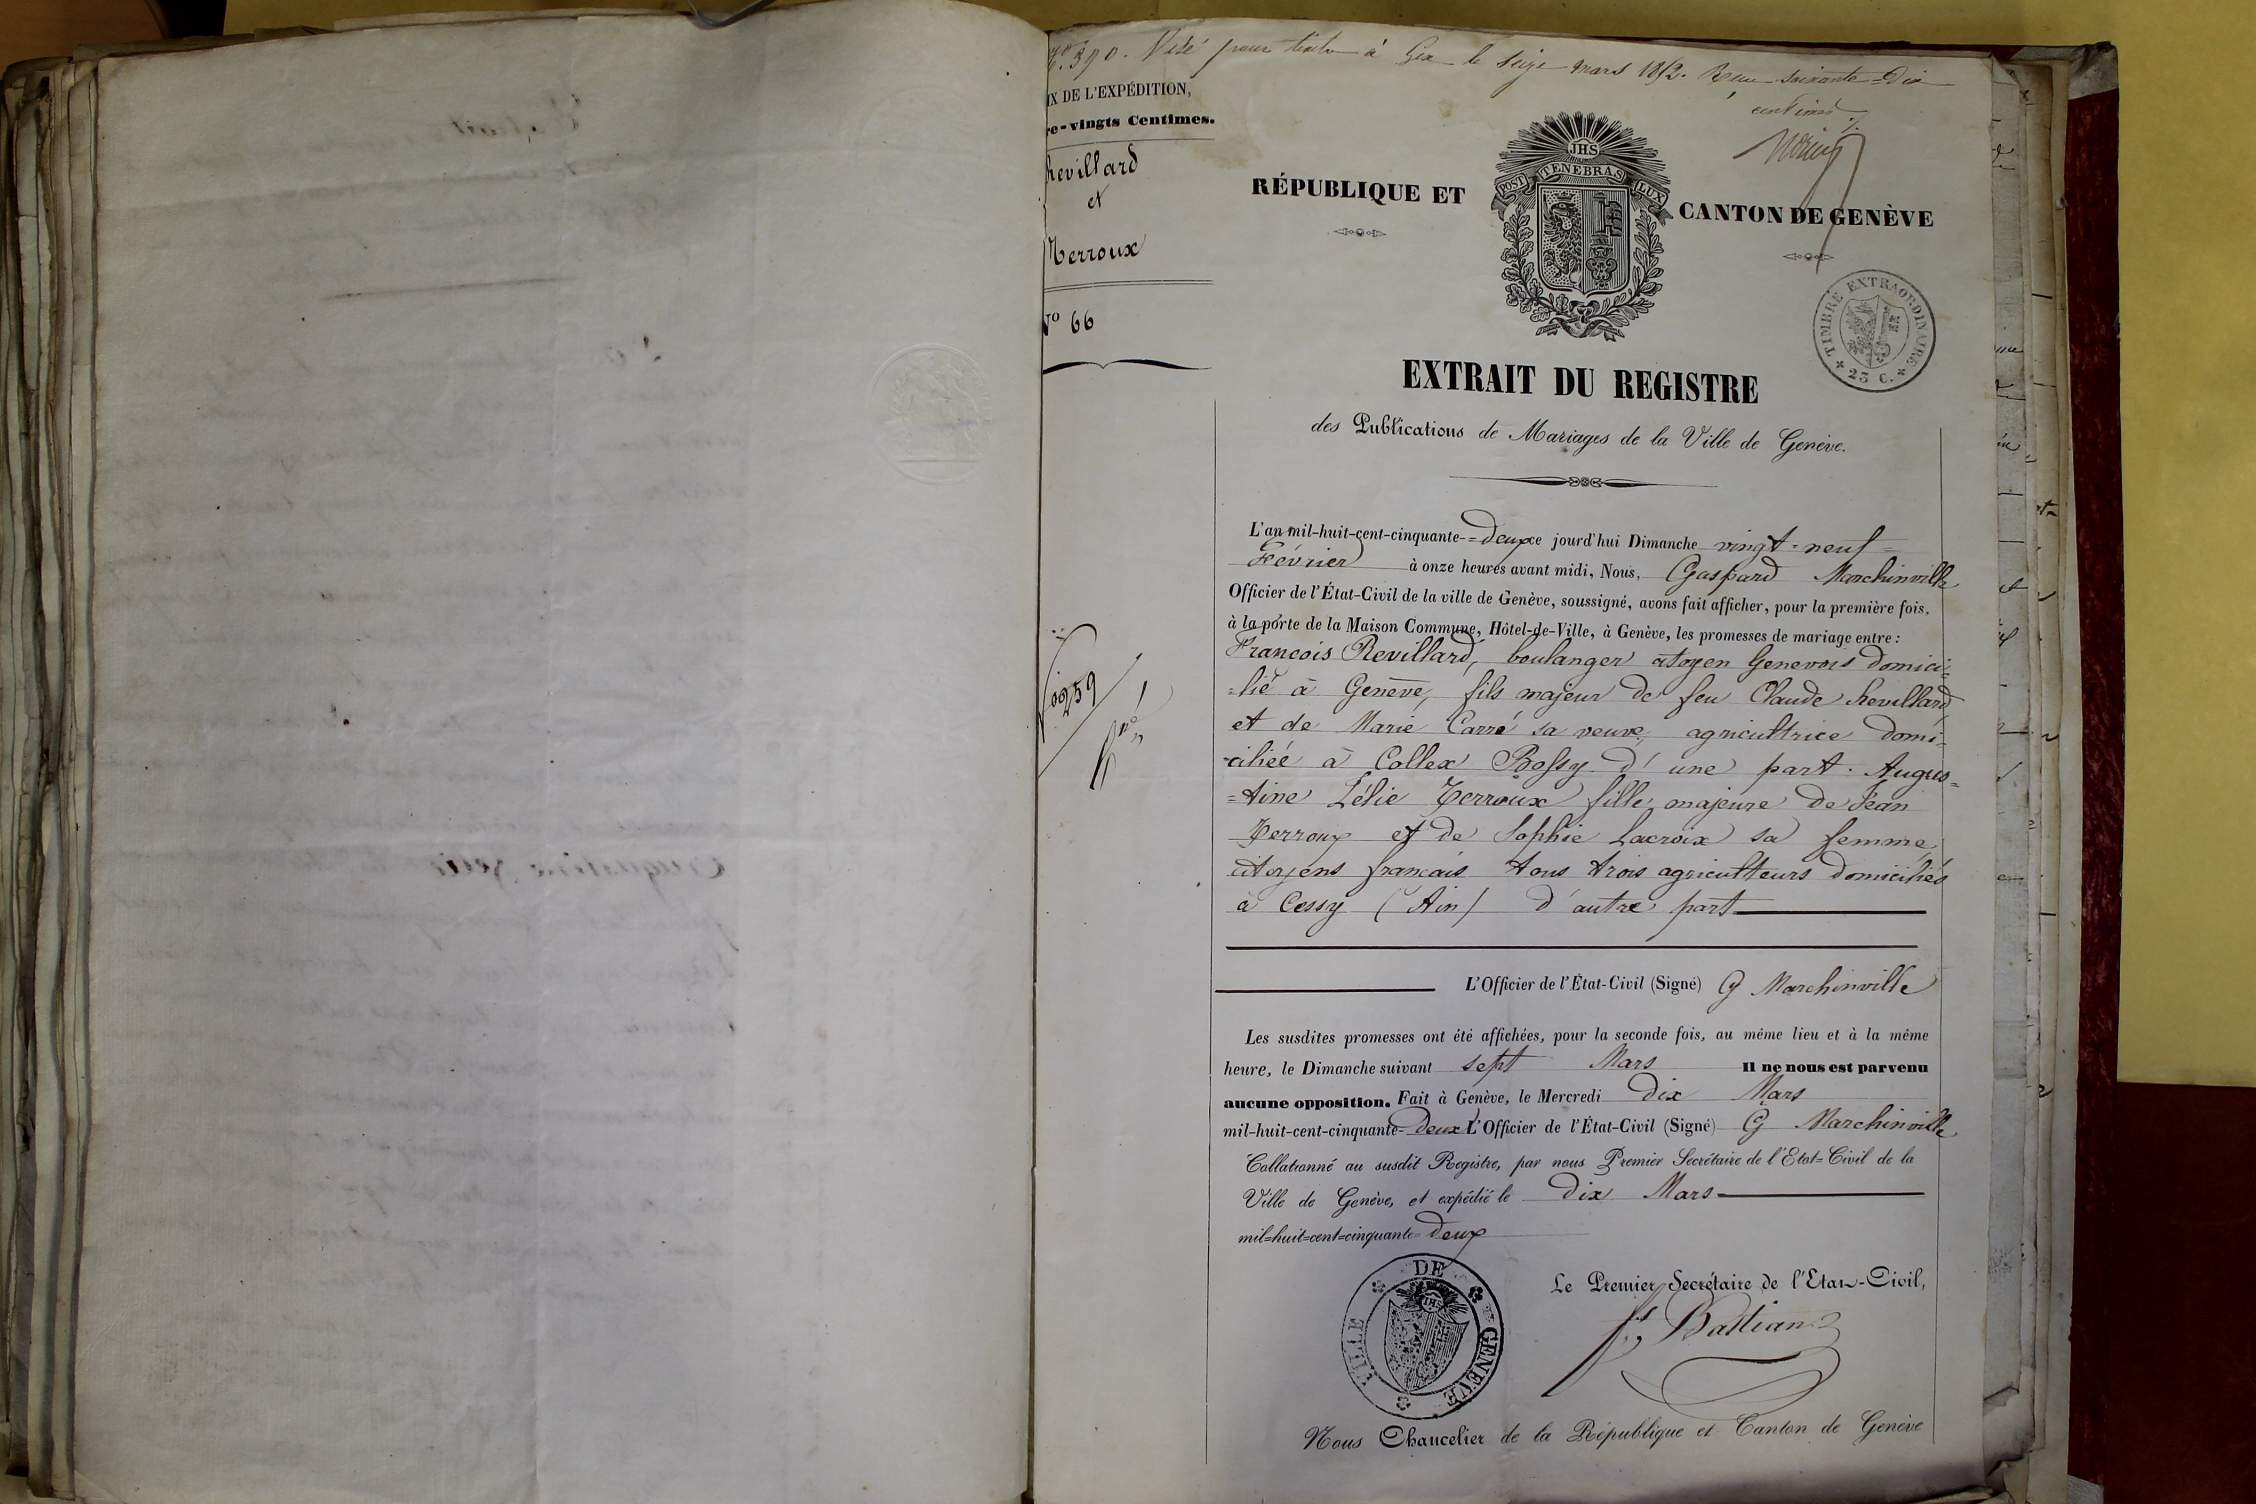 N.° 390. Visé pour timbre à Gex le seize mars 1852. Reçu soixante-Dix
centimes
IX DE L'EXPÉDITION,
re-vingts Centimes.
hevillard
et
Terroux
N° 66
JHS
POST TENEBRAS LUX
RÉPUBLIQUE ET CANTON DE GENÈVE
TIMBRE EXTRAORDINAIRE
25 C.
EXTRAIT DU REGISTRE
des Publications de Mariages de la Ville de Genève.
L'an mil-huit-cent-cinquante-=deux ce jourd'hui Dimanche vingt-neuf=
Février à onze heures avant midi, Nous, Gaspard Marchinville
Officier de l'État-Civil de la ville de Genève, soussigné, avons fait afficher, pour la première fois,
à la porte de la Maison Commune, Hôtel-de-Ville, à Genève, les promesses de mariage entre :
François Revillard, boulanger citoyen Genevois domici=
=lié à Genève, fils majeur de feu Claude hevillard
et de Marie Carré sa veuve, agricultrice domi=
-ciliée à Collex Bossy d'une part. Augus=
=tine Zélie Terroux fille majeure de Jean
Terroux et de Sophie Lacroix sa femme
citoyens français tous trois agriculteurs domiciliés
à Cessy (Ain) d'autre part
L'Officier de l'État-Civil (Signé) G Marchinville
Les susdites promesses ont été affichées, pour la seconde fois, au même lieu et à la même
heure, le Dimanche suivant sept Mars Il ne nous est parvenu
aucune opposition. Fait à Genève, le Mercredi Dix Mars
mil-huit-cent-cinquante-Deux L'Officier de l'État-Civil (Signé) G Marchinville
Collationné au susdit Registre, par nous Premier Secrétaire de l'Etat=Civil de la
Ville de Genève, et expédié le Dix Mars
mil=huit=cent=cinquante=Deux
VILLE DE GENÈVE
JHS
Le Premier Secrétaire de l'Etat-Civil,
Bastian
Nous Chancelier de la République et Canton de Genève
259